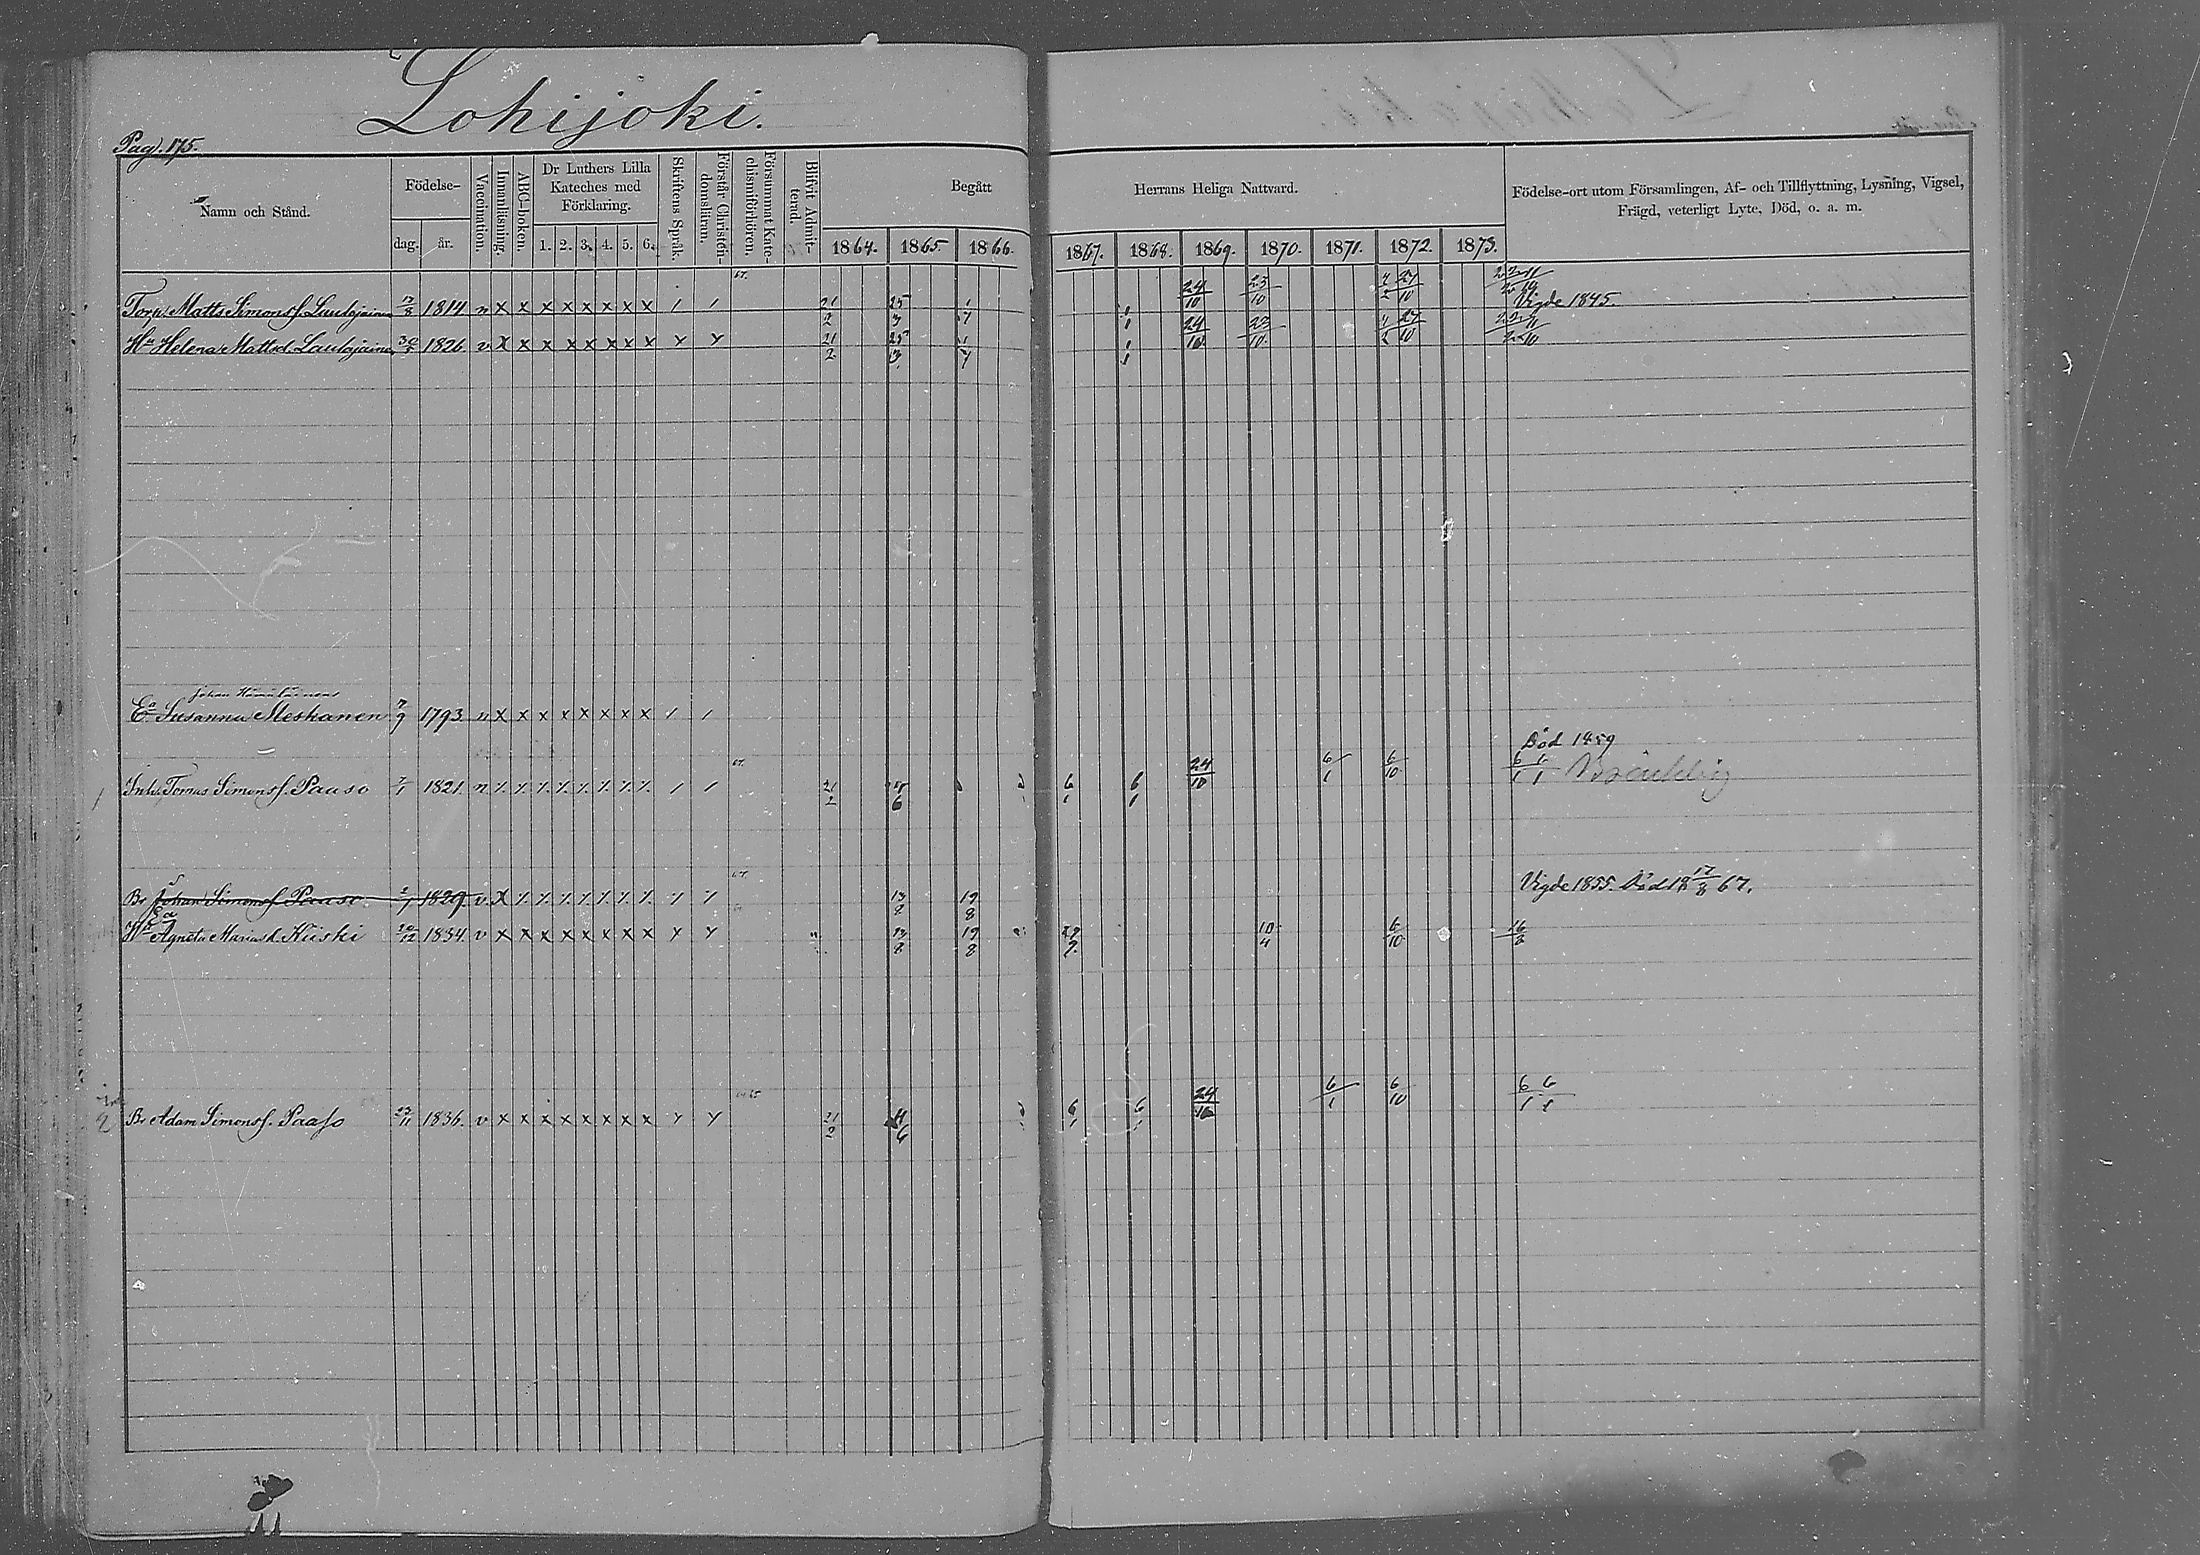 Lohijoki.
Pag. 175.
Namn och Stånd.
Födelse-
dag. år.
Vaccination.
Innanläsning.
ABC-boken.
Dr Luthers Lilla
Kateches med
Förklaring.
1. 2. 3. 4. 5. 6.
Skriftens Språk.
Förstår Christen-
domsläran.
Försummat Kate-
chismiförhören.
Blifvit Admit-
terad.
Begått Herrans Heliga Nattvard.
1864. 1865. 1866. 1867. 1868. 1869. 1870. 1871. 1872. 1873.
Födelse-ort utom Församlingen, Af- och Tillflyttning, Lysning, Vigsel,
Frägd, veterligt Lyte, Död, o. a. m.
67.
Torp. Matts Simonsf. 1814 n x x x x x x x x / / 21/2 25/3 1/7 1/1 24/10 23/10 27/10 Vigde 1845.
Hu Helena Mattsd. 1826. v x x x x x x x x Y Y 21/2 25/3 1/7 1/1 24/10 23/10 27/10
Johan
Ea Susanna Meskanen 7/9 1793 n x x x x x x x x / /
Död 1859
67.
1 Inh. Tomas Simonsf. Pauso 7/1 1821. n / / 21/2 6/1 6/1 24/10 6/1 6/10 6/1 6/1
67.
Br Johan Simonsf. Paaso 1829. v x 13/8 19/8 Vigde 1855. Död 18 17/8 67.
Ea
Hu Agneta Mariasd. Kiiski 1834. v x x x x x x x x Y Y 13/8 19/8 10/4 6/10 16/2
2 Br Adam Simonsf. Paaso 1836. v x x x x x x x x Y Y 21/2 11/6 6/1 6/1 24/10 6/1 6/10 6/1 6/1